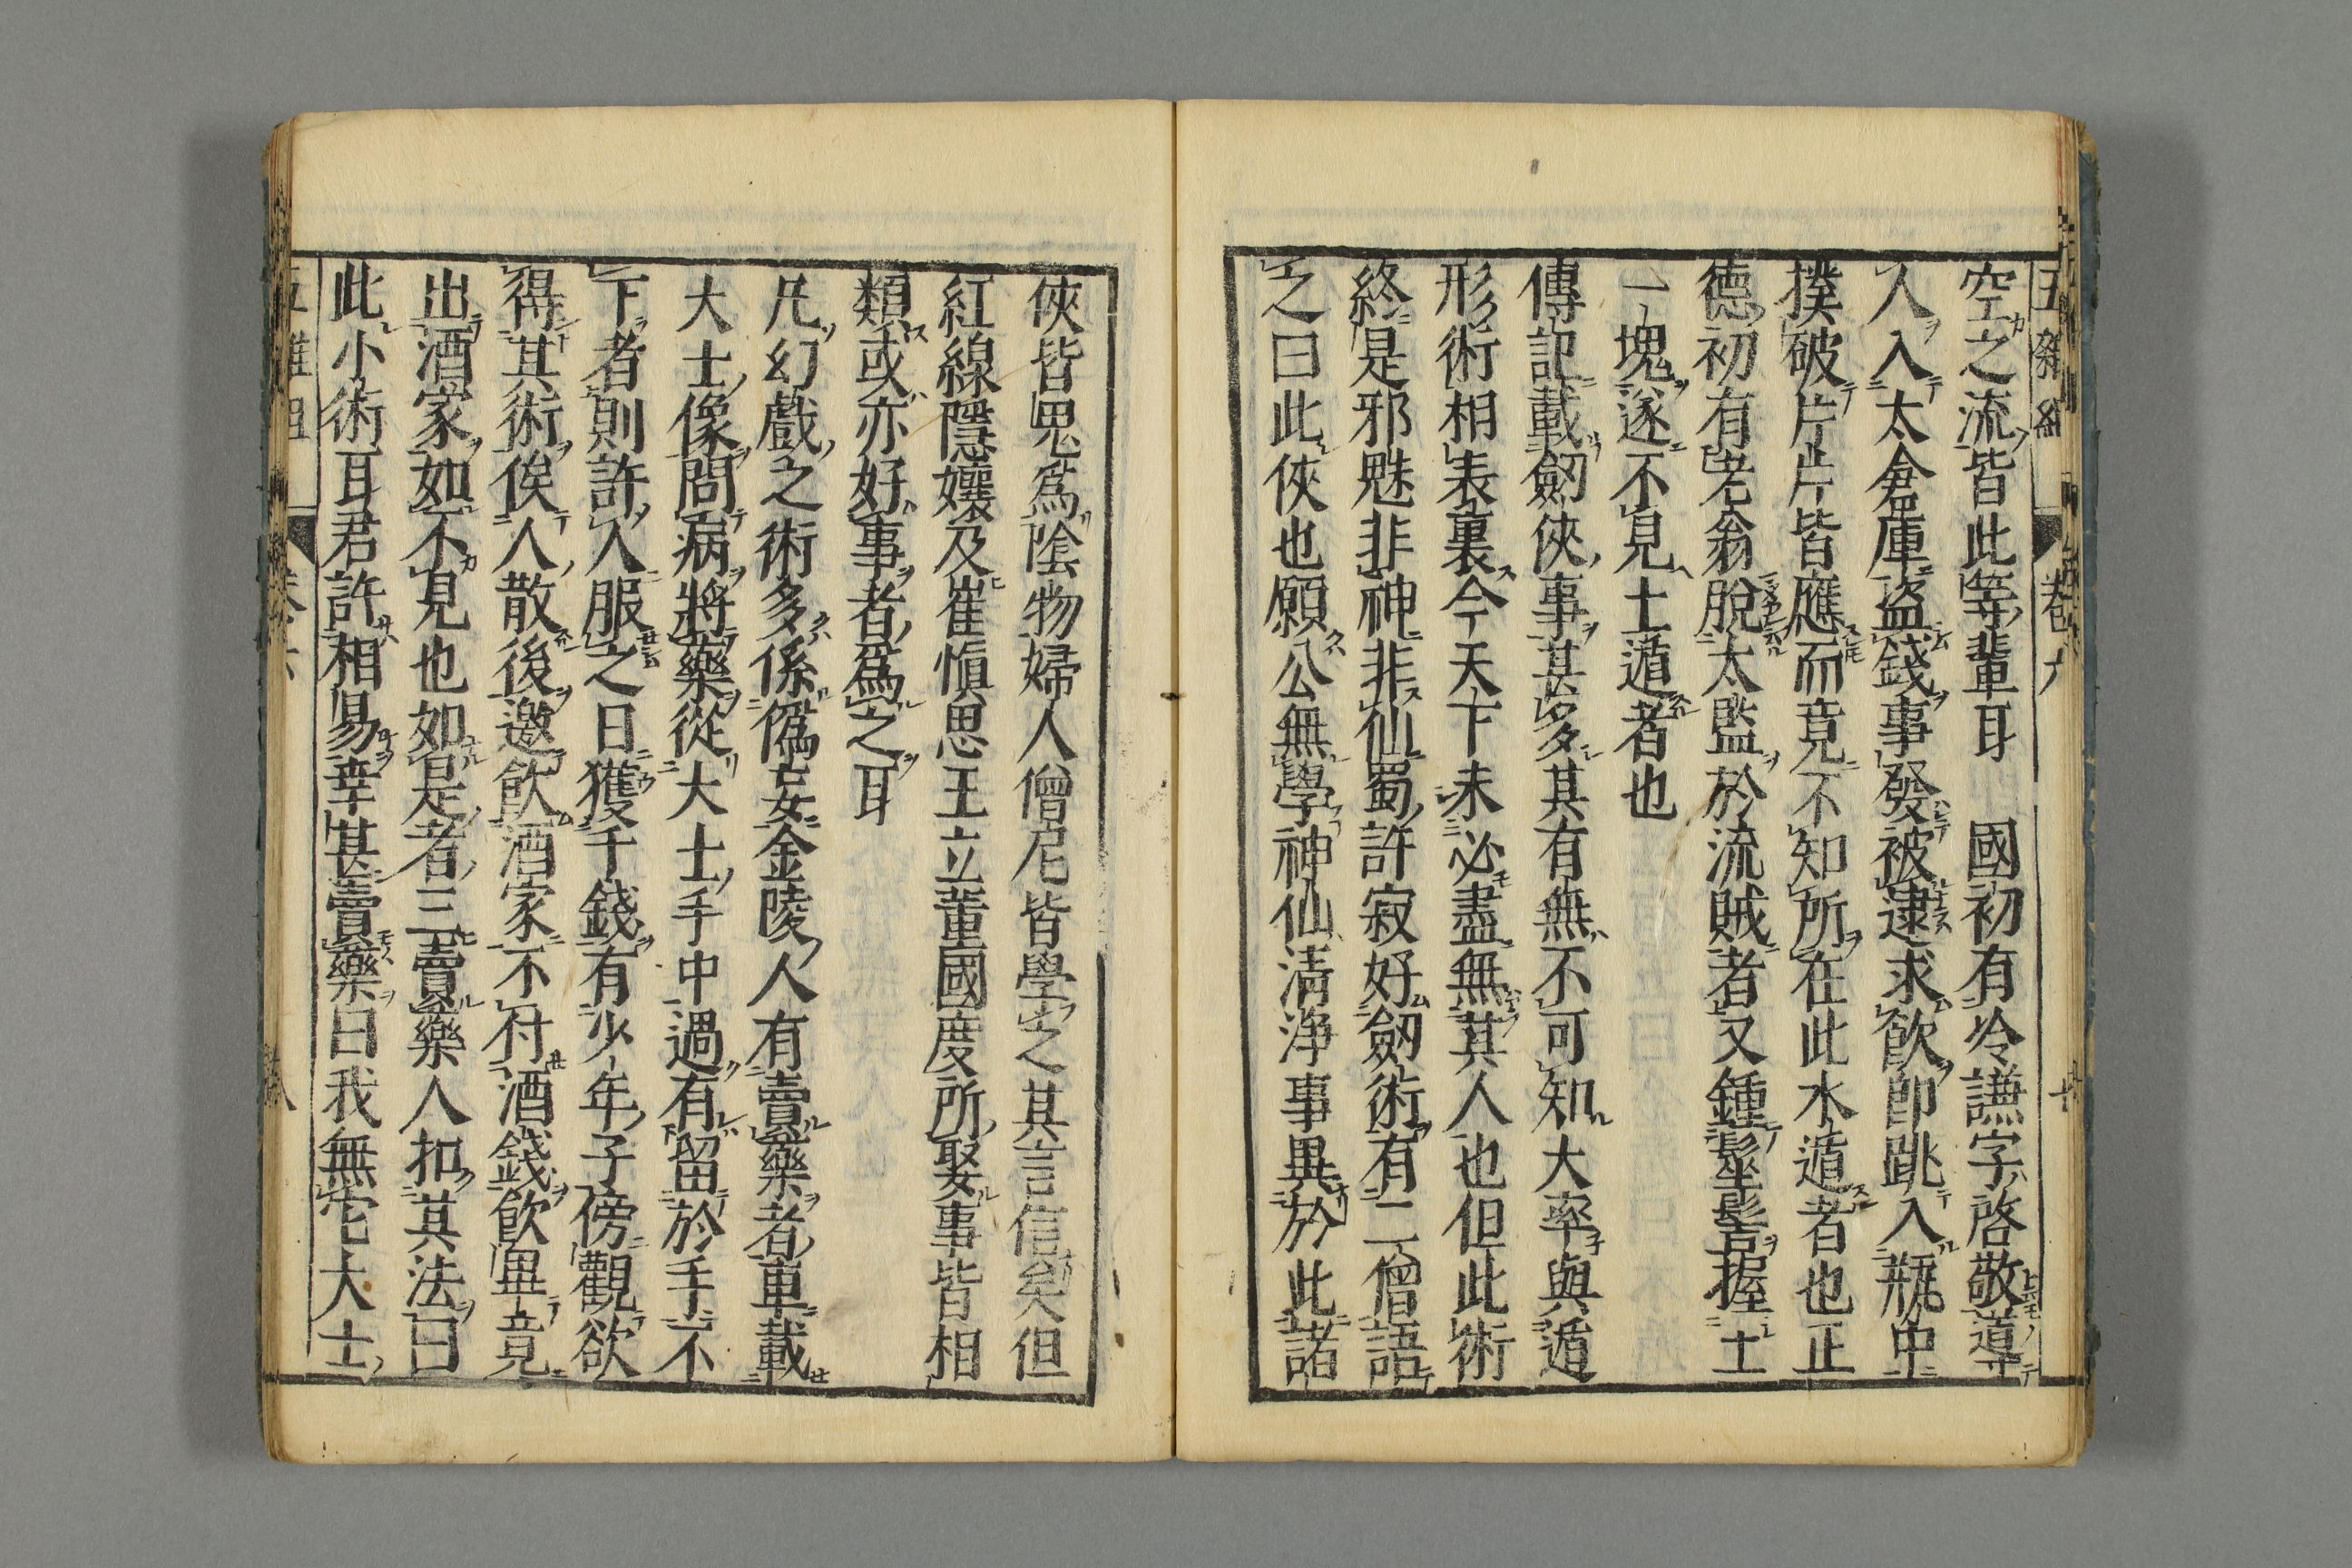 五雜組 卷六
空之流皆此等輩耳 國初有冷謙字啓敬導
人入太倉庫盜錢事發被逮求飲卽跳入瓶中
撲破片片皆應而竟不知所在此水遁者也正
德初有老翁脫太監於流賊者又鍾髽髻握土
一塊遂不見土遁者也
傳記載劒俠事甚多其有無不可知大率與遁
形術相表裏今天下未必盡無其人也但此術
終是邪魅非神非仙蜀許寂好劒術有二僧語
之曰此俠也願公無學神仙清淨事異於此諸
俠皆鬼爲陰物婦人僧尼皆學之其言信矣但
紅線隱孃及崔愼思王立董國度所娶事皆相
類或亦好事者爲之耳
凡幻戲之術多係僞妄金陵人有賣藥者車載
大士像問病將藥從大士手中過有留於手不
下者則許人服之日獲千錢有少年子傍觀欲
得其術俟人散後邀飲酒家不付酒錢飲畢竟
出酒家如不見也如是者三賣藥人扣其法曰
此小術耳君許相易幸甚賣藥曰我無它大士
五雜組 卷六